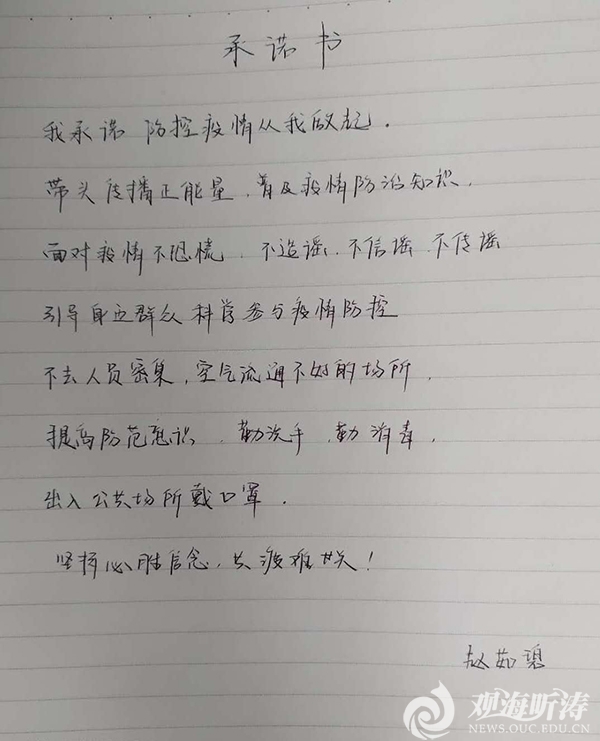 承诺书
我承诺 防控疫情从我做起.
带头传播正能量,普及疫情防治知识.
面对疫情不恐慌. 不造谣.不信谣.不传谣
引导身边群众科学参与疫情防控
不去人员密集,空气流通不好的场所.
提高防范意识.勤洗手.勤消毒.
出入公共场所戴口罩.
坚持必胜信念.共渡难关!
赵茹
观海听涛
NEWS.OUC.EDU.CN